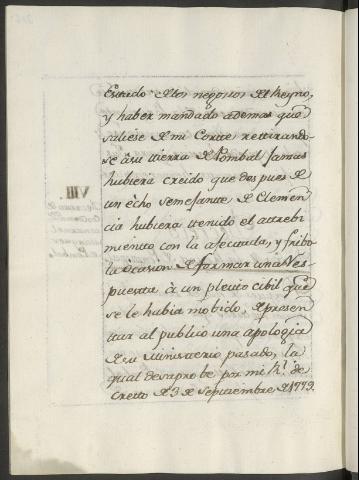 Estado de los negosios del Reyno,
y haber mandado ademas que
saliese de mi Corte rettirando-
se à su tierra de Pombal jamas
hubiera creido que despues de
un echo semejante de Clemen
cia hubiera ttenido el attrebi
miento con la afecttada, y fribo
la ocasion de formar una Res-
puesta à un pleito cibil que
se le habia mobido, de presen
ttar al publico una apologia
de su Ministerio pasado, la
qual desaprobe por mi Rl. de
cretto de 3 de Septtiembre de 1779.
VIII.